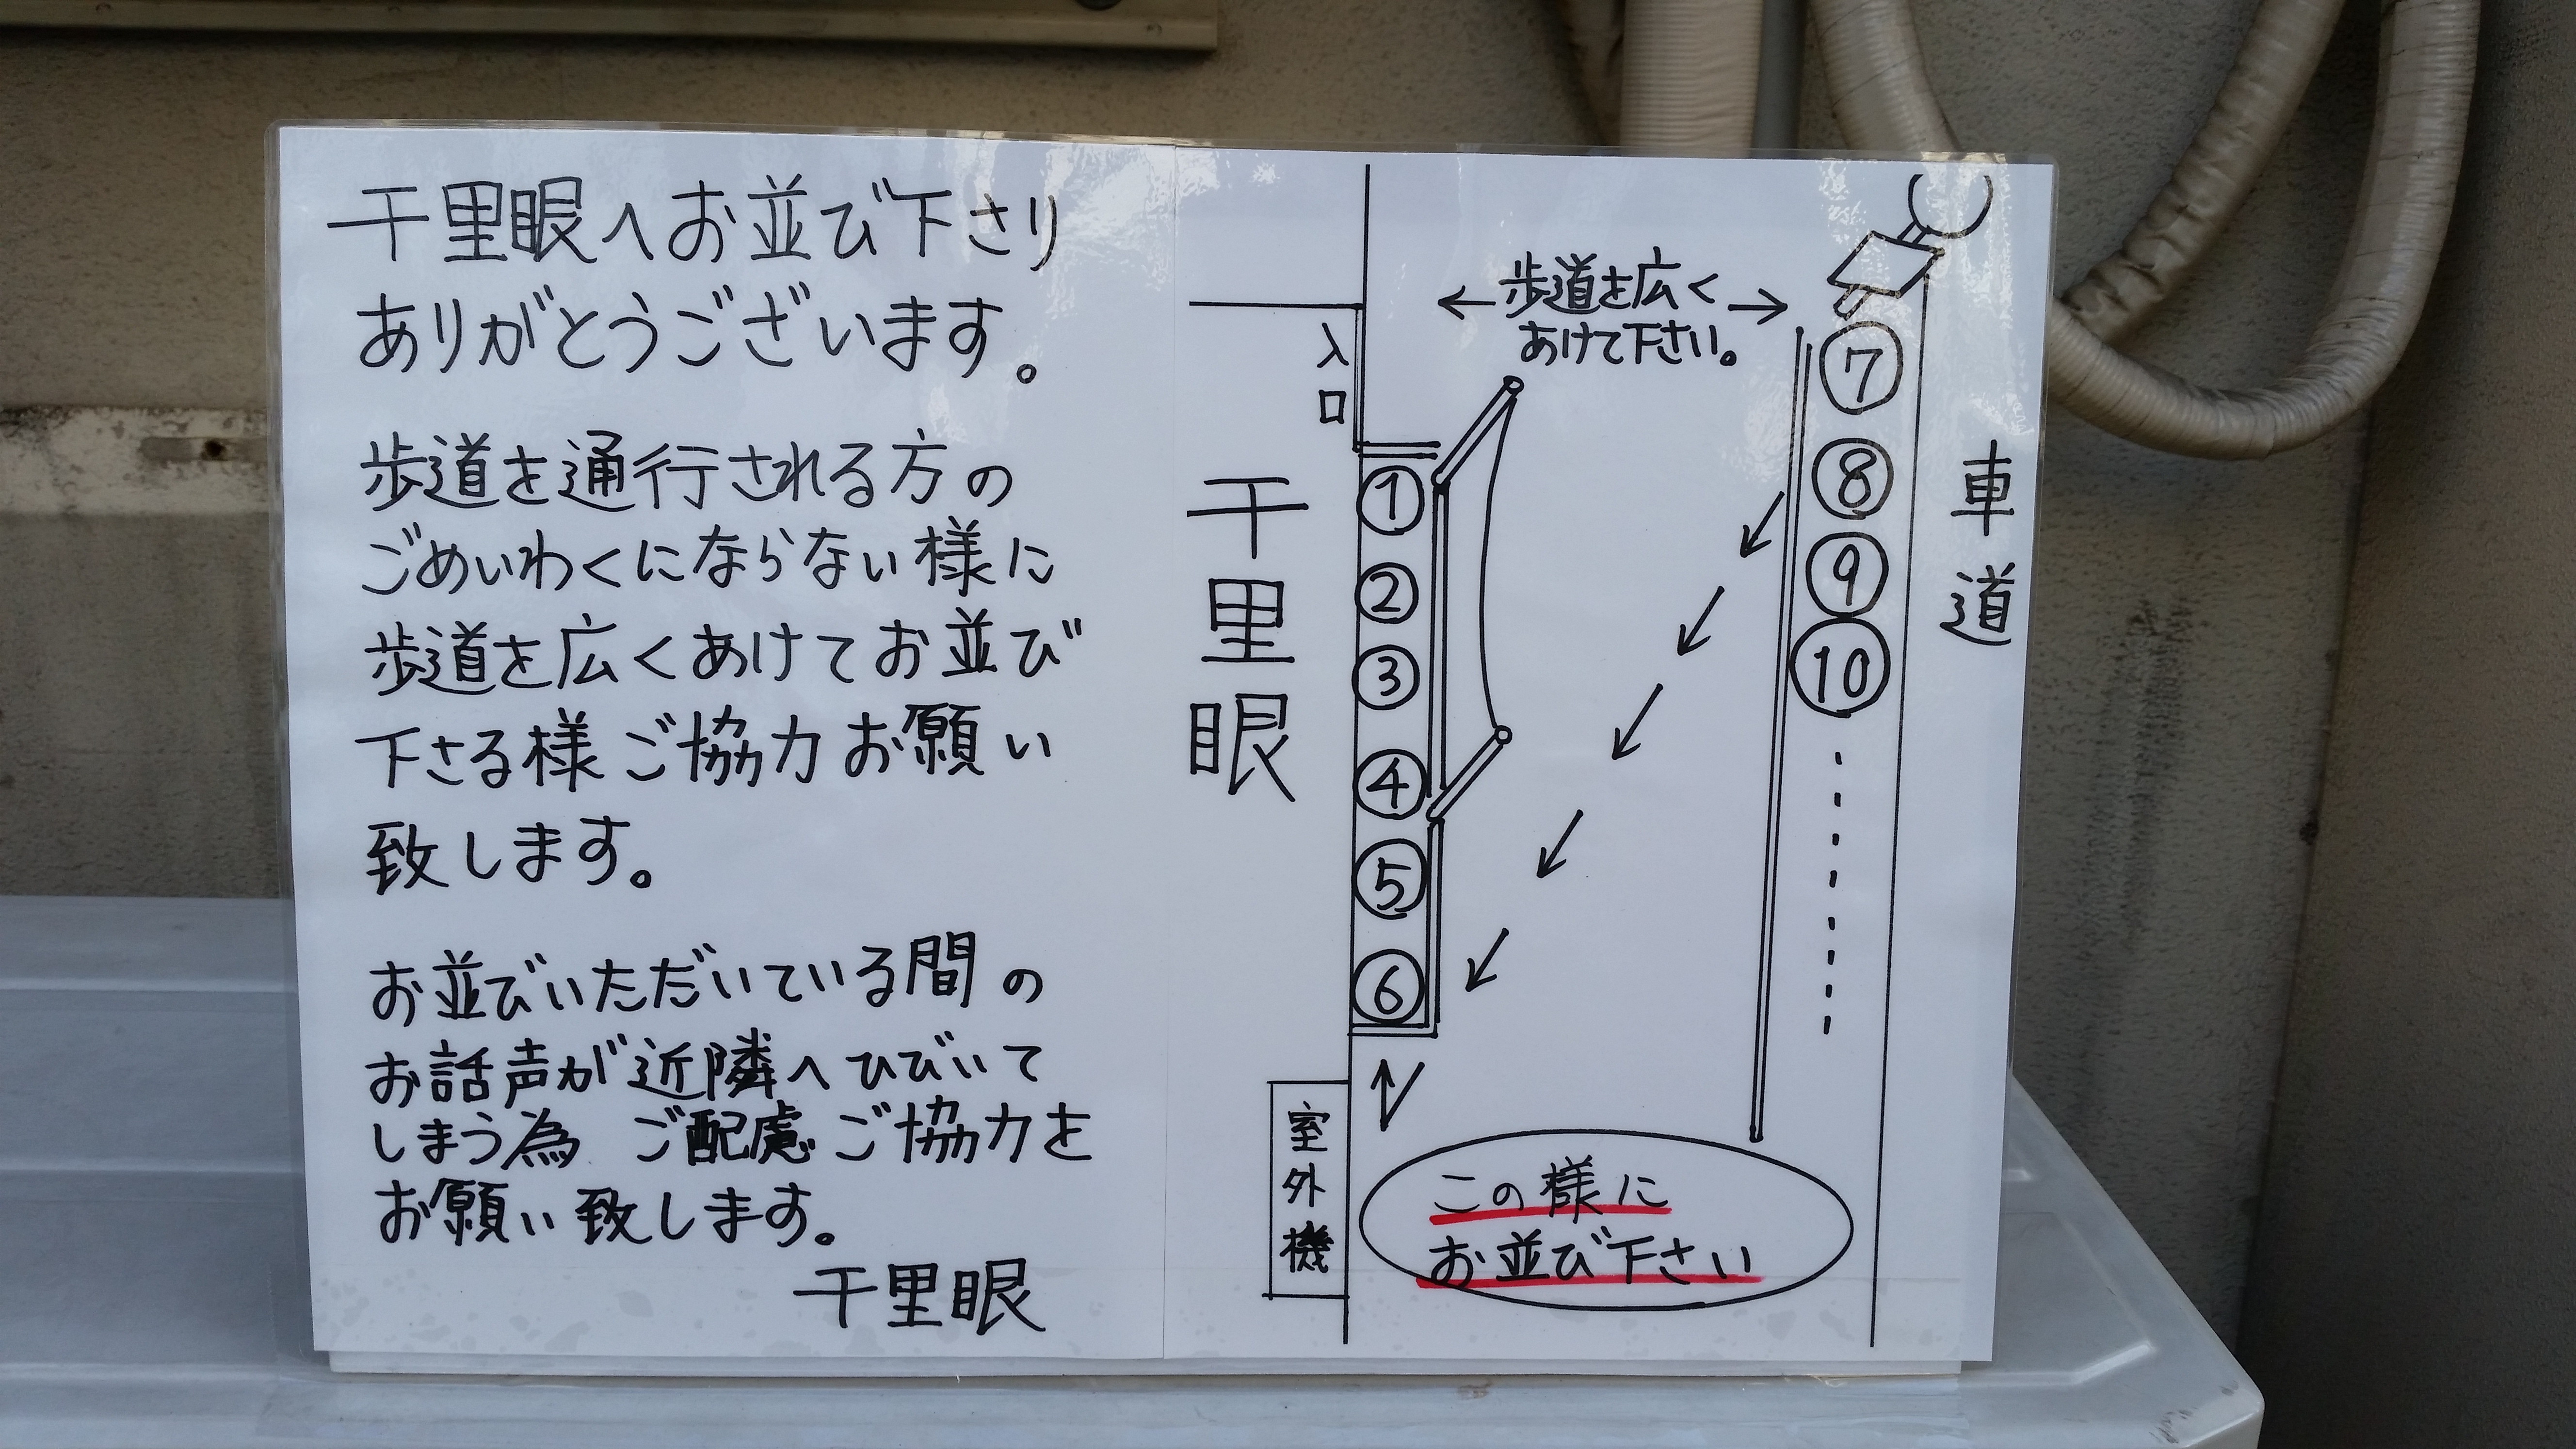 千里眼へお並び下さり
ありがとうございます。
歩道を通行される方の
ごめいわくにならない様に
歩道を広くあけてお並び
下さる様ご協力お願い
致します。
お並びいただいている間の
お話声が近隣へひびいて
しまう為 ご配慮ご協力を
お願い致します。
千里眼
←歩道を広く→
あけて下さい。
入口
千里眼
①
②
③
④
⑤
⑥
⑦
⑧
⑨
⑩
車道
室外機
この様に
お並び下さい